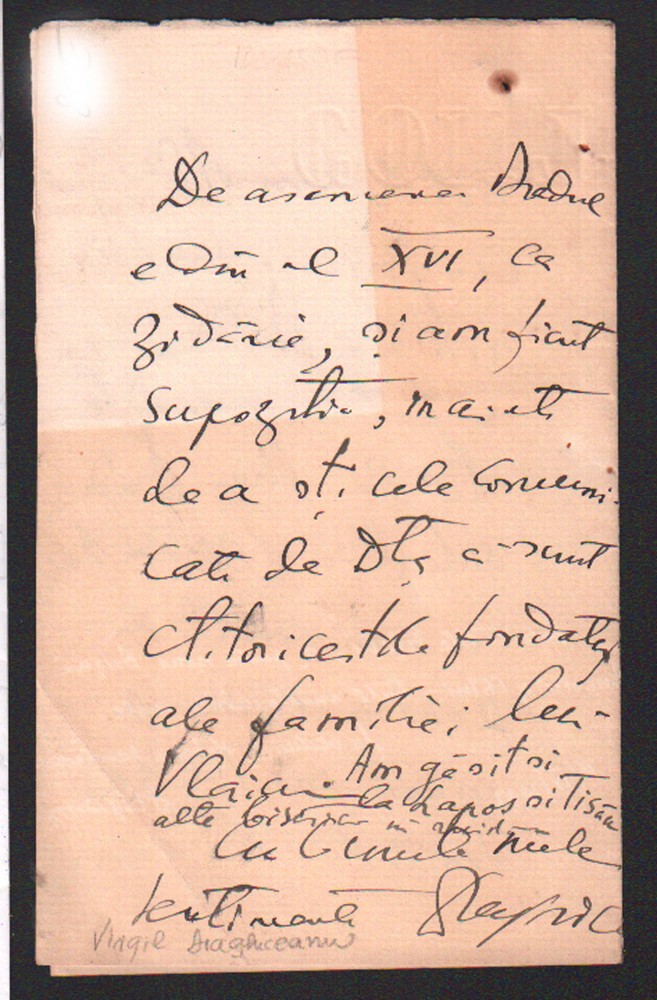 De asemenea Bradul
e din al XVI, ca
zidărie, și am făcut
supoziția, înainte
de a ști cele comuni-
cate de Dta că sunt
ctitoricestile fondații
ale familiei lui
Vlaicu. Am găsit si
la Lapos si Tisău
alte biserici în
cu bunele mele
sentimente
Virgil Draghiceanu